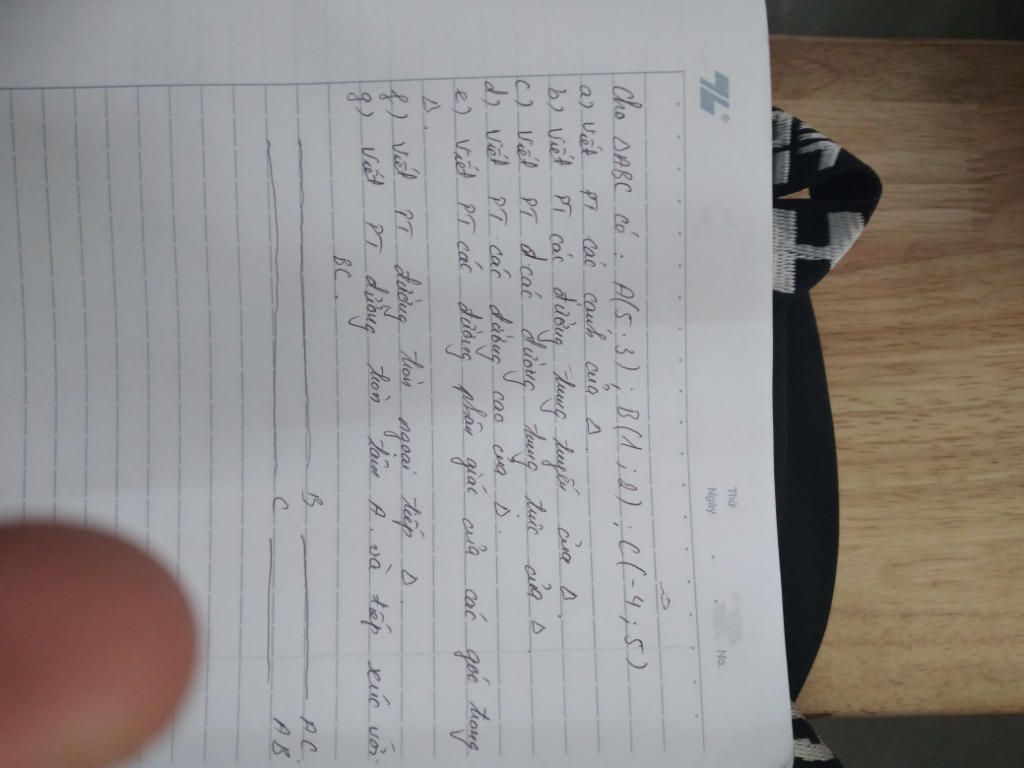 Thứ
Ngày
No.
Cho ΔABC có : A(5;3) ; B(1;2) ; C(-4;5)
a) Viết PT các cạnh của Δ.
b) Viết PT các đường trung tuyến của Δ.
c) Viết PT đ các đường trung trực của Δ.
d) Viết PT các đường cao của Δ.
e) Viết PT các đường phân giác của các góc trong
Δ.
f) Viết PT đường tròn ngoại tiếp Δ.
g) Viết PT đường tròn tâm A và tiếp xúc với
BC.
B AC
C AB